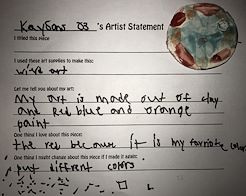 Kaydon 03 's Artist Statement
I titled this piece
I used these art supplies to make this:
wird art
Let me tell you about my art:
My art is made out of clay
and red blue and orange
paint
One thing I love about this piece:
the red because it is my favorite color
One thing I might change about this piece if I made it again:
put different colors